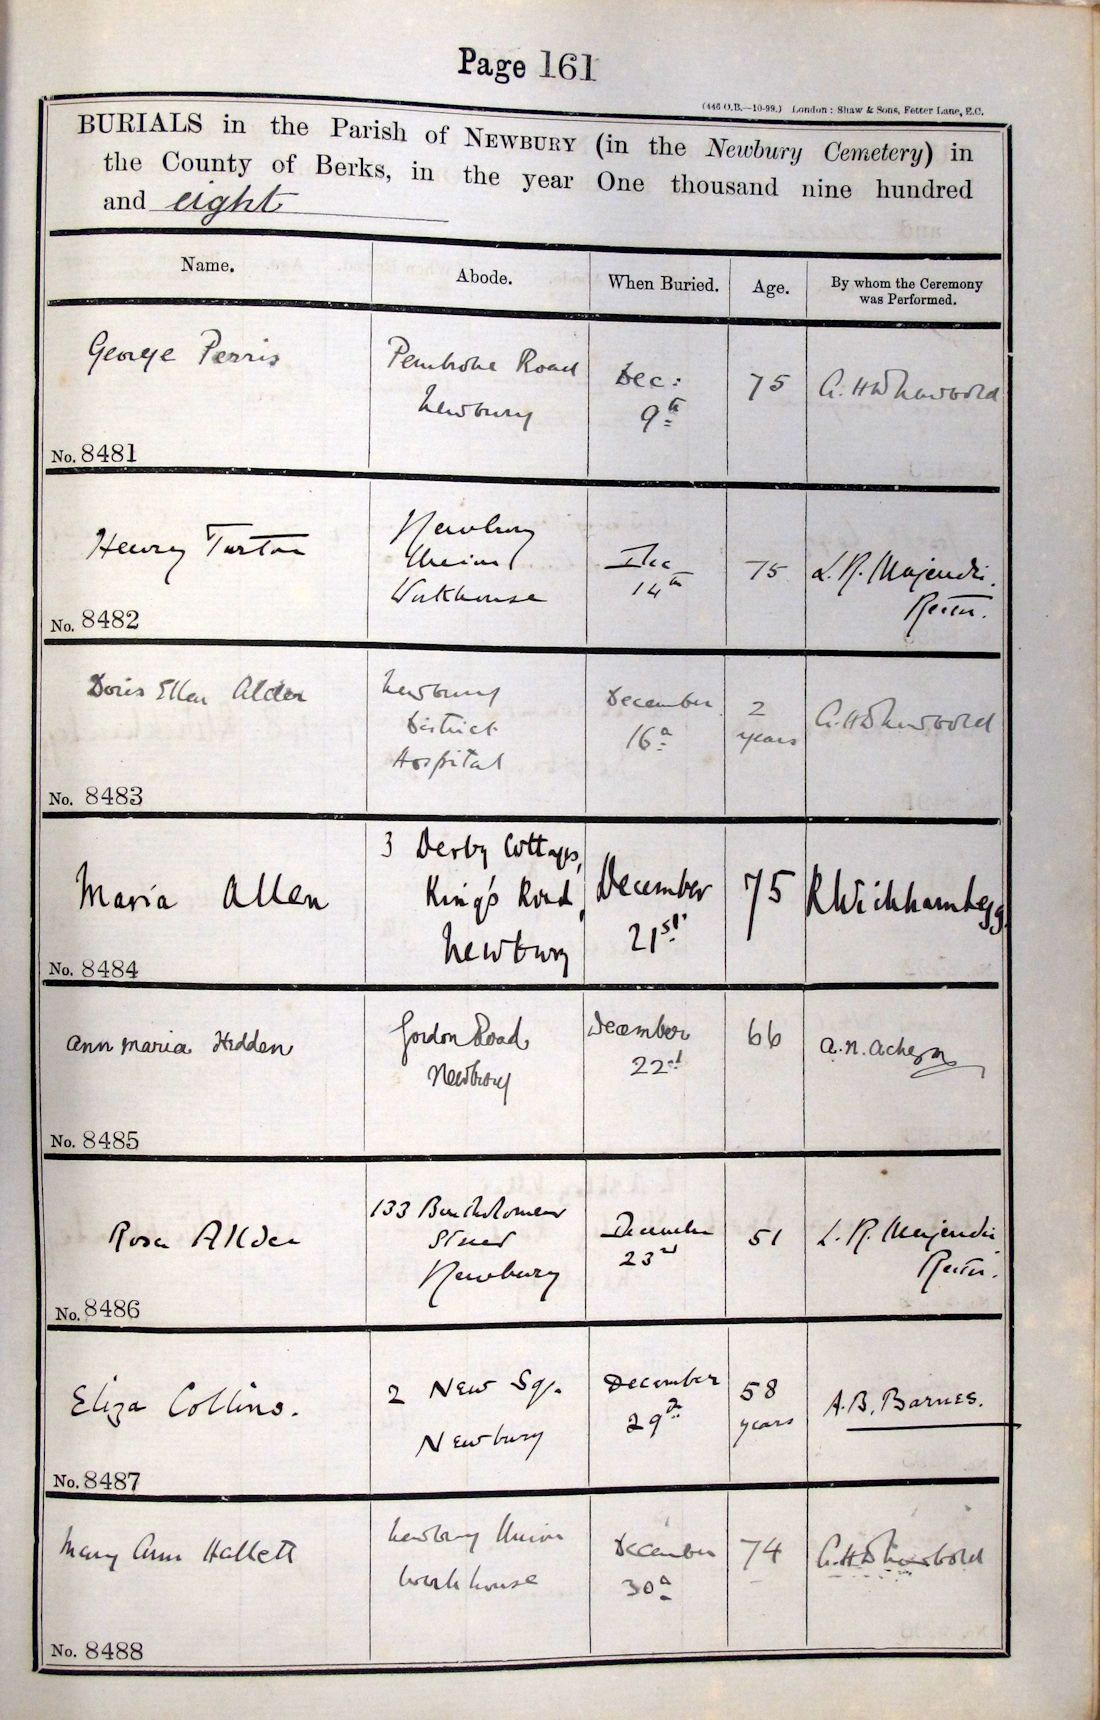 Page 161
(446 O.B.—10-99.) London: Shaw & Sons, Fetter Lane, E.C.
BURIALS in the Parish of NEWBURY (in the Newbury Cemetery) in
the County of Berks, in the year One thousand nine hundred
and eight
Name. Abode. When Buried. Age. By whom the Ceremony
was Performed.
George Perris Pembroke Road Dec: 75
Newbury 9th
No. 8481
Henry Turton Newbury Dec 75 L. R. Majendie
Union 14th Rector.
Workhouse
No. 8482
Doris Ellen Alder Newbury December 2
District 16th years
Hospital
No. 8483
Maria Allen 3 Derby Cottages, December 75 R Wickham Legg
King's Road, 21st
Newbury
No. 8484
Ann Maria Hidden Gordon Road December 66 A. N. Acheson
Newbury 22nd
No. 8485
Rosa Allder 133 Bartholomew December 51 L. R. Majendie
Street 23rd Rector.
Newbury
No. 8486
Eliza Collins. 2 New Sq. December 58 A. B. Barnes.
Newbury 29th years
No. 8487
Mary Ann Hallett Newbury Union December 74
Workhouse 30th
No. 8488